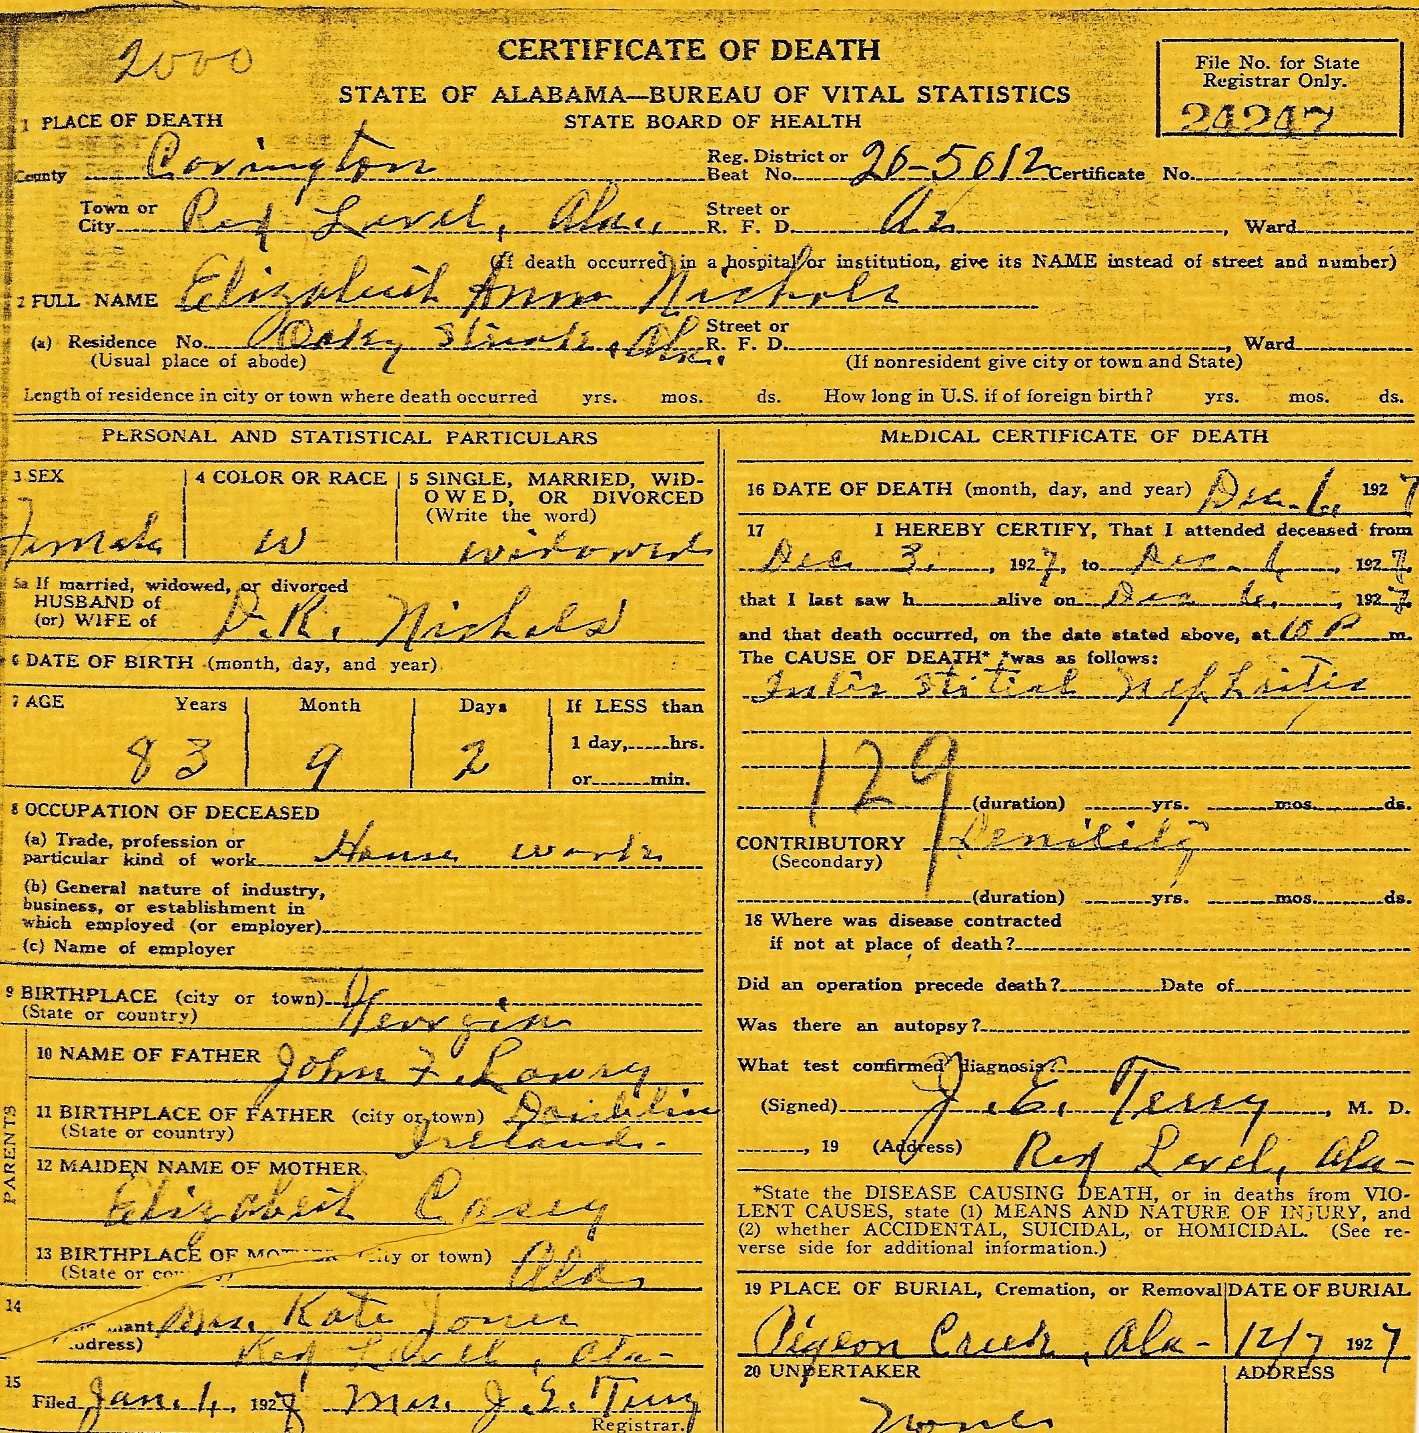 2000
CERTIFICATE OF DEATH
STATE OF ALABAMA—BUREAU OF VITAL STATISTICS
STATE BOARD OF HEALTH
File No. for State
Registrar Only.
24247
1 PLACE OF DEATH
County Covington Reg. District or Beat No. 20-5012 Certificate No.
Town or City Red Level, Ala. Street or R. F. D. , Ward
(If death occurred in a hospital or institution, give its NAME instead of street and number)
2 FULL NAME Elizabeth Anna Nichols
(a) Residence No. Oaky Streak, Ala. Street or R. F. D. , Ward
(Usual place of abode) (If nonresident give city or town and State)
Length of residence in city or town where death occurred yrs. mos. ds. How long in U.S. if of foreign birth? yrs. mos. ds.
PERSONAL AND STATISTICAL PARTICULARS
3 SEX
Female
4 COLOR OR RACE
W
5 SINGLE, MARRIED, WID-
OWED, OR DIVORCED
(Write the word)
widowed
5a If married, widowed, or divorced
HUSBAND of
(or) WIFE of D.K. Nichols
6 DATE OF BIRTH (month, day, and year)
7 AGE Years Month Days If LESS than
83 9 2 1 day, hrs.
or min.
8 OCCUPATION OF DECEASED
(a) Trade, profession or
particular kind of work House work
(b) General nature of industry,
business, or establishment in
which employed (or employer)
(c) Name of employer
9 BIRTHPLACE (city or town)
(State or country) Georgia
PARENTS
10 NAME OF FATHER John F. Lowry
11 BIRTHPLACE OF FATHER (city or town) Doublin
(State or country) Ireland.
12 MAIDEN NAME OF MOTHER
Elizabeth Casey
13 BIRTHPLACE OF MOTHER (city or town) Ala
(State or country)
14
mant Mrs. Kate Jones
address) Red Level, Ala-
15
Filed Jan. 4, 1928 Mrs. J. E. Terry
Registrar.
MEDICAL CERTIFICATE OF DEATH
16 DATE OF DEATH (month, day, and year) Dec. 6, 1927
17 I HEREBY CERTIFY, That I attended deceased from
Dec 3. , 1927, to Dec. 6 , 1927,
that I last saw h alive on Dec 6, , 1927
and that death occurred, on the date stated above, at 10 P m.
The CAUSE OF DEATH* *was as follows:
Inter stitial Nephritis
129
(duration) yrs. mos. ds.
CONTRIBUTORY Senility
(Secondary)
(duration) yrs. mos. ds.
18 Where was disease contracted
if not at place of death?
Did an operation precede death? Date of
Was there an autopsy?
What test confirmed diagnosis?
(Signed) J. E. Terry , M. D.
, 19 (Address) Red Level, Ala-
*State the DISEASE CAUSING DEATH, or in deaths from VIO-
LENT CAUSES, state (1) MEANS AND NATURE OF INJURY, and
(2) whether ACCIDENTAL, SUICIDAL, or HOMICIDAL. (See re-
verse side for additional information.)
19 PLACE OF BURIAL, Cremation, or Removal DATE OF BURIAL
Pigeon Creek, Ala- 12/7 1927
20 UNDERTAKER ADDRESS
None